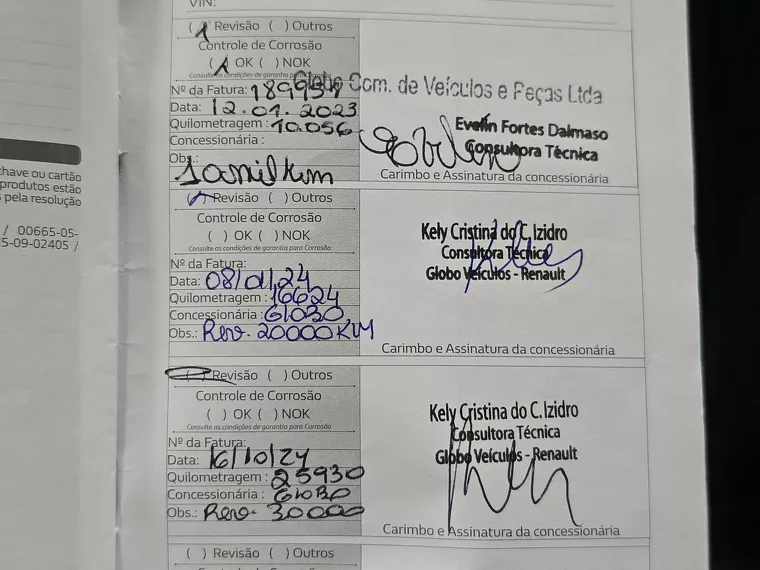 VIN:
(1) Revisão ( ) Outros
Controle de Corrosão
(1) OK ( ) NOK
Consulte as condições de garantia para Corrosão
Nº da Fatura: 189957
Globo Com. de Veículos e Peças Ltda
Data: 12.01.2023
Quilometragem : 10.056
Evelin Fortes Dalmaso
Concessionária :
Consultora Técnica
Obs.: 10 mil km
Carimbo e Assinatura da concessionária
( ) Revisão ( ) Outros
Controle de Corrosão
( ) OK ( ) NOK
Consulte as condições de garantia para Corrosão
Kely Cristina do C. Izidro
Consultora Técnica
Globo Veículos - Renault
Nº da Fatura:
Data: 08/01/24
Quilometragem : 16624
Concessionária : Globo
Obs.: Rev. 20000 KM
Carimbo e Assinatura da concessionária
( ) Revisão ( ) Outros
Controle de Corrosão
( ) OK ( ) NOK
Consulte as condições de garantia para Corrosão
Kely Cristina do C. Izidro
Consultora Técnica
Globo Veículos - Renault
Nº da Fatura:
Data: 16/10/24
Quilometragem : 25930
Concessionária : Globo
Obs.: Rev. 30000
Carimbo e Assinatura da concessionária
( ) Revisão ( ) Outros
chave ou cartão
produtos estão
s pela resolução
/ 00665-05-
5-09-02405 /